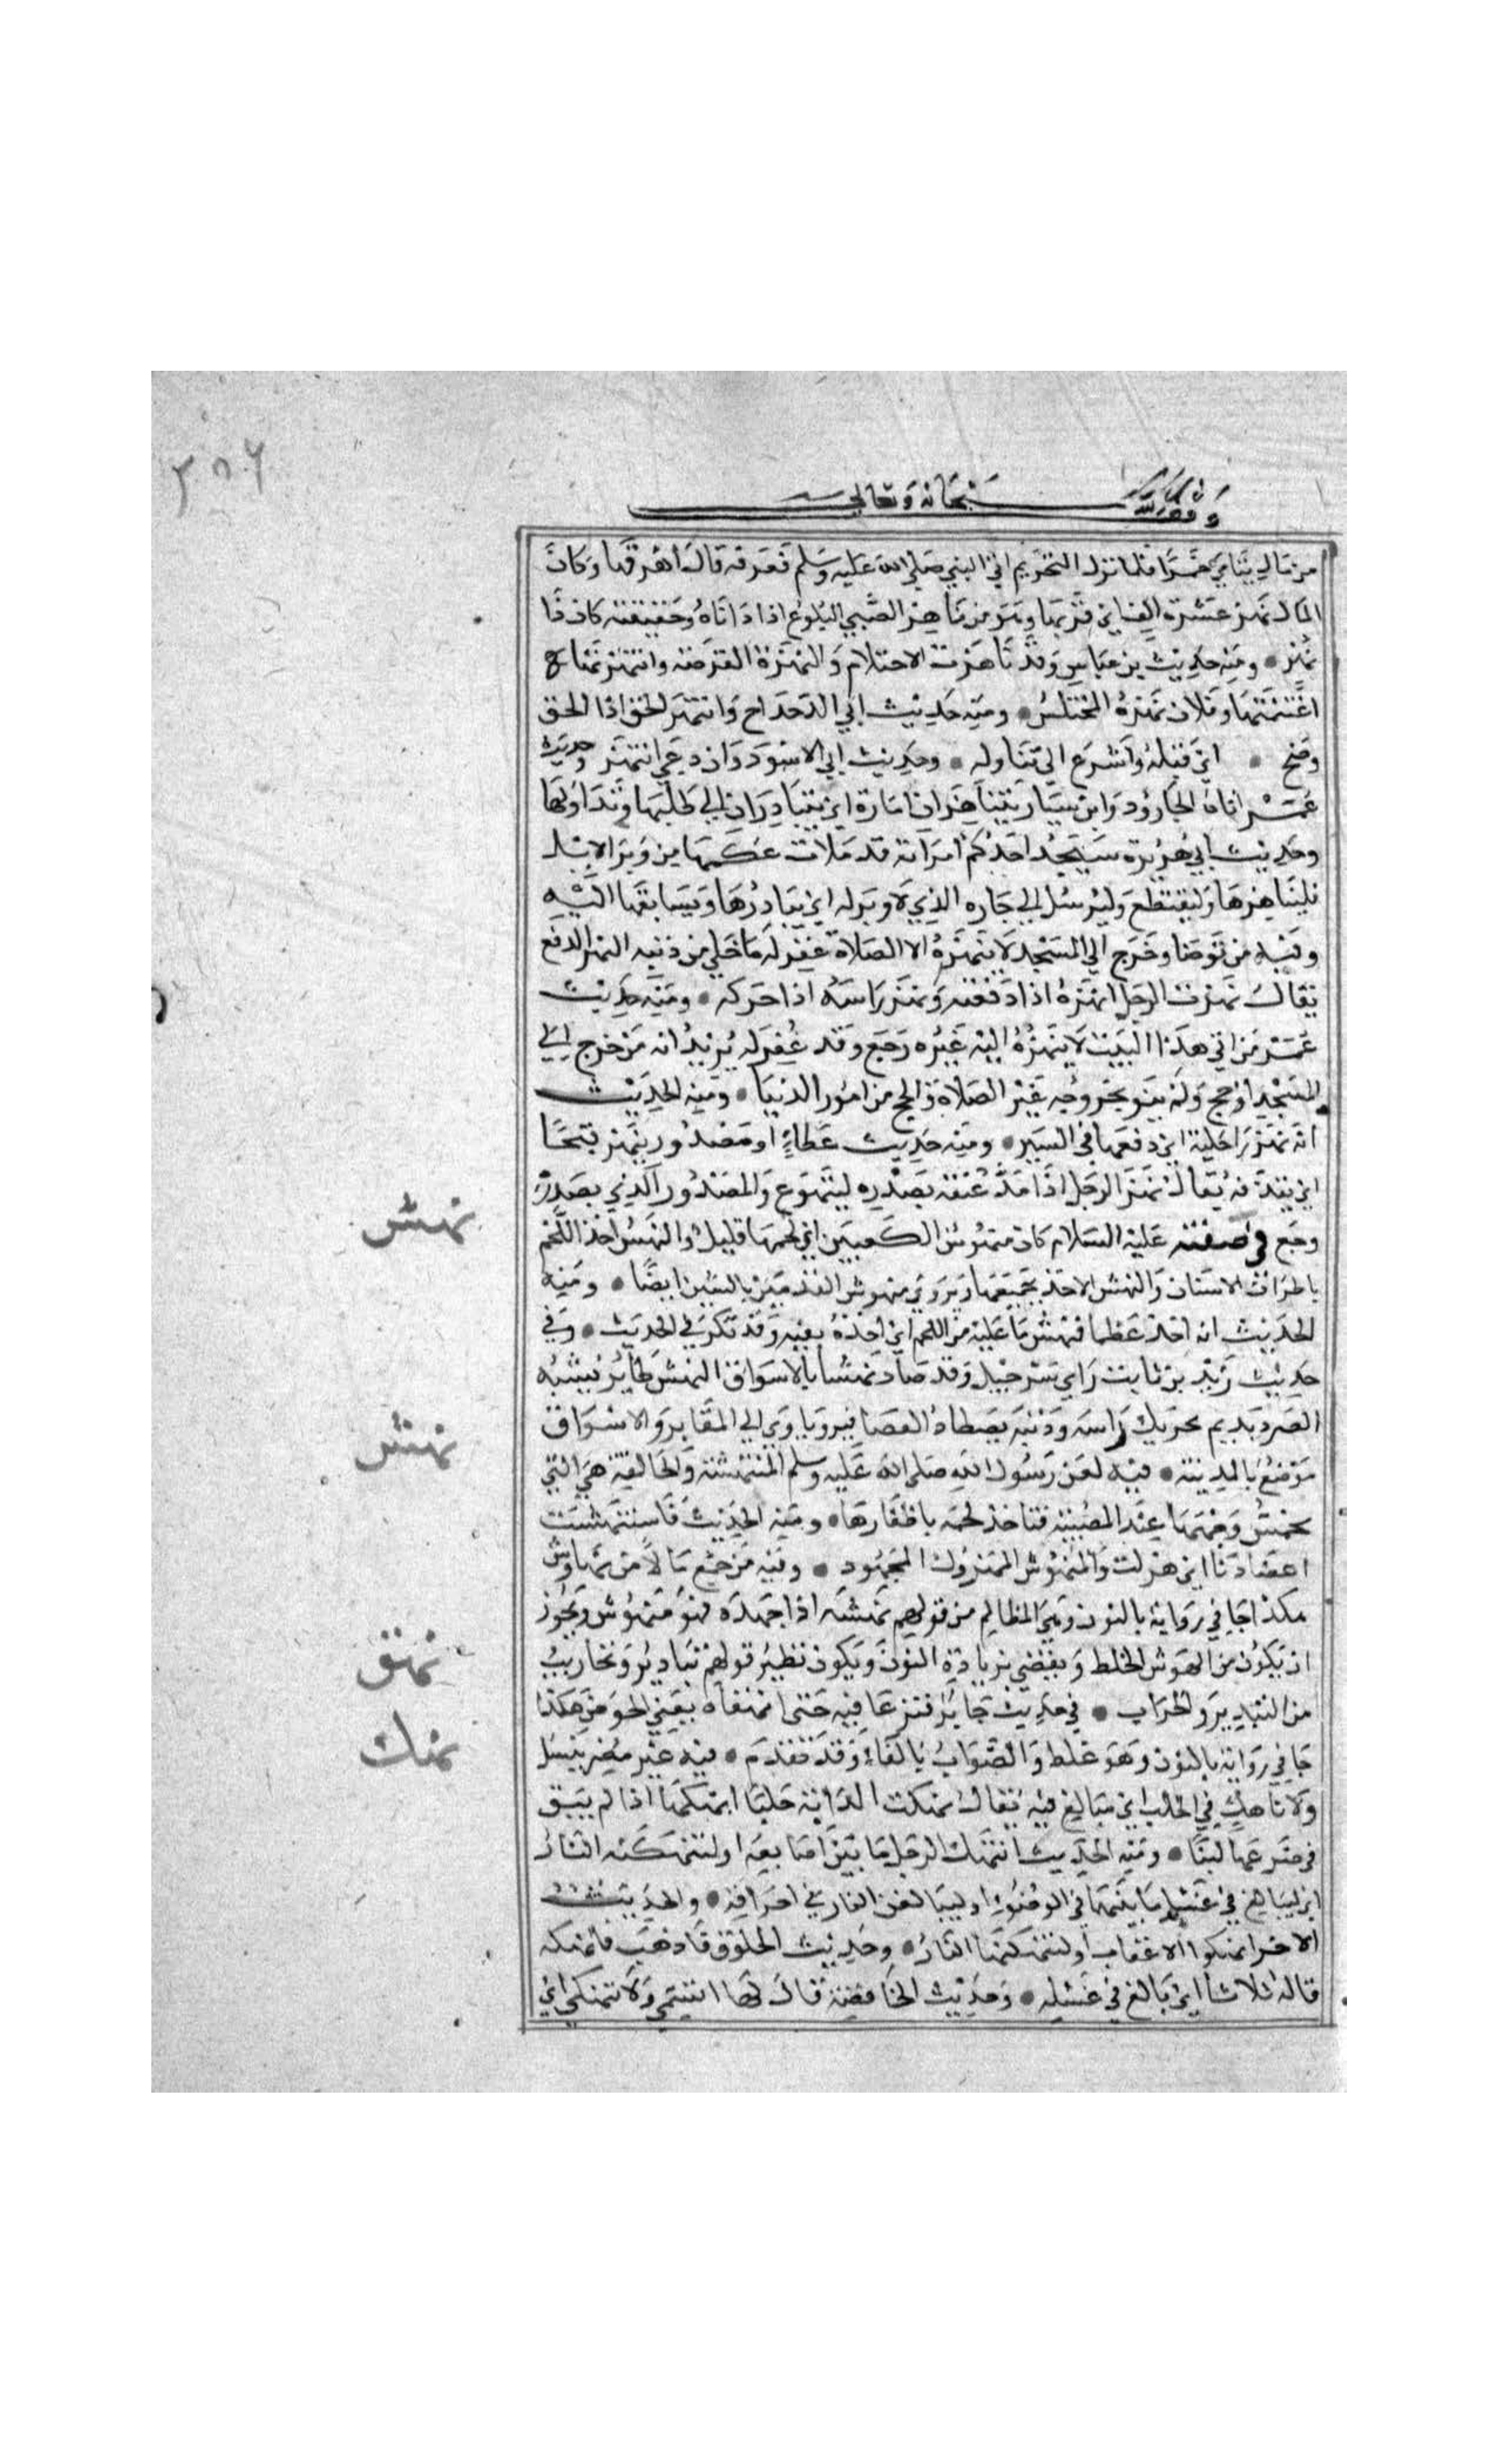 وقف لله سبحانه وتعالى
من مال يتامى خمرا فلما نزل التحريم اتى النبي صلى الله عليه وسلم فعرفه قال اهرقها وكان
المال نهز عشرة الف اي قربها وهو من ناهز الصبي البلوغ اذا داناه وحقيقته كان ذا
نهز • ومنه حديث بن عباس وقد ناهزت الاحتلام والنهزة الفرصة وانتهز
اغتنمتها وفلان نهزة المختلس • ومنه حديث ابي الدحداح وانتهز الحق اذا الحق
وضح • اي قبله واسرع الى تناوله • وحديث ابي الاسود وان دعي انتهز وحديث
عمر اتاه الجارود وابن سيار يتناهزان امارة اي يتبادران الى طلبها وتداولها
وحديث ابي هريرة سيجد احدكم امراته قد ملات عكمها من وبر الابل
فليناهزها وليقتطع وليرسل الى جاره الذي لا وبر له اي يبادرها ويسابقها اليه
وفيه من توضا وخرج الى المسجد لا ينهزه الا الصلاة غفر له ما خلي من ذنبه النهز الدفع
يقال نهزت الرجل انهزه اذا دفعته ونهز راسه اذا حركه • ومنه حديث
عمر من اتى هذا البيت لا ينهزه اليه غيره رجع وقد غفر له يريد انه من خرج الى
المسجد او حج ولم ينو بخروجه غير الصلاة والحج من امور الدنيا • ومنه الحديث
انه نهز راحلته اي دفعها في السير • ومنه حديث عطاء او مصدور ينهز قيحا
اي يقذفه يقال نهز الرجل اذا مد عنقه بصدره ليتهوع والمصدور الذي بصدره
وجع في صفته عليه السلام كان منهوش الكعبين اي لحمها قليل والنهس اخذ اللحم
باطراف الاسنان والنهش الاخذ بجميعها ويروى منهوش القدمين بالسين ايضا • ومنه
الحديث انه اخذ عظما فنهش ما عليه من اللحم اي اخذه بفيه وقد تكرر في الحديث • وفي
حديث زيد بن ثابت راي شرحبيل وقد صاد نهسا بالاسواف النهس طائر يشبه
الصرد يديم تحريك راسه وذنبه يصطاد العصافير وياوي الى المقابر والاسواف
موضع بالمدينة • فيه لعن رسول الله صلى الله عليه وسلم المنتهشة والحالقة هي التي
تخمش وجهها عند المصيبة فتاخذ لحمه باظفارها • ومنه الحديث فاسـتنهشت
اعضادنا اي هزلت والمنهوش المهزول المجهود • وفيه من جمع مالا من نهاوش
هكذا جا في رواية بالنون وهي المظالم من قولهم نهشه اذا جهده فهو منهوش ويجوز
ان يكون من الهوش الخلط ويقضي بزيادة النون ويكون نظير قولهم نباذير ونخاريب
من التبذير والخراب • في حديث جابر فنزعنا فيه حتى انهقناه يعني الحوض هكذا
جا في رواية بالنون وهو غلط والصواب بالفاء وقد تقدم • فيه غير مضر بنسل
ولا ناهك في الحلب اي مبالغ فيه يقال نهكت الناقة حلبا انهكها اذا لم يبق
في ضرعها لبنا • ومنه الحديث لينهك الرجل ما بين اصابعه او لتنهكنه النار
اي ليبالغ في غسل ما بينهما في الوضوء او ليبالغن النار في احراقه • والحديث
الاخر انهكوا الاعقاب او لتنهكنها النار • وحديث الخلوق قاذهب فانهكه
قاله ثلاثا اي بالغ في غسله • وحديث الخافضة قال لها اشمي ولا تنهكي اي
نهش
نهش
نهق
نهك